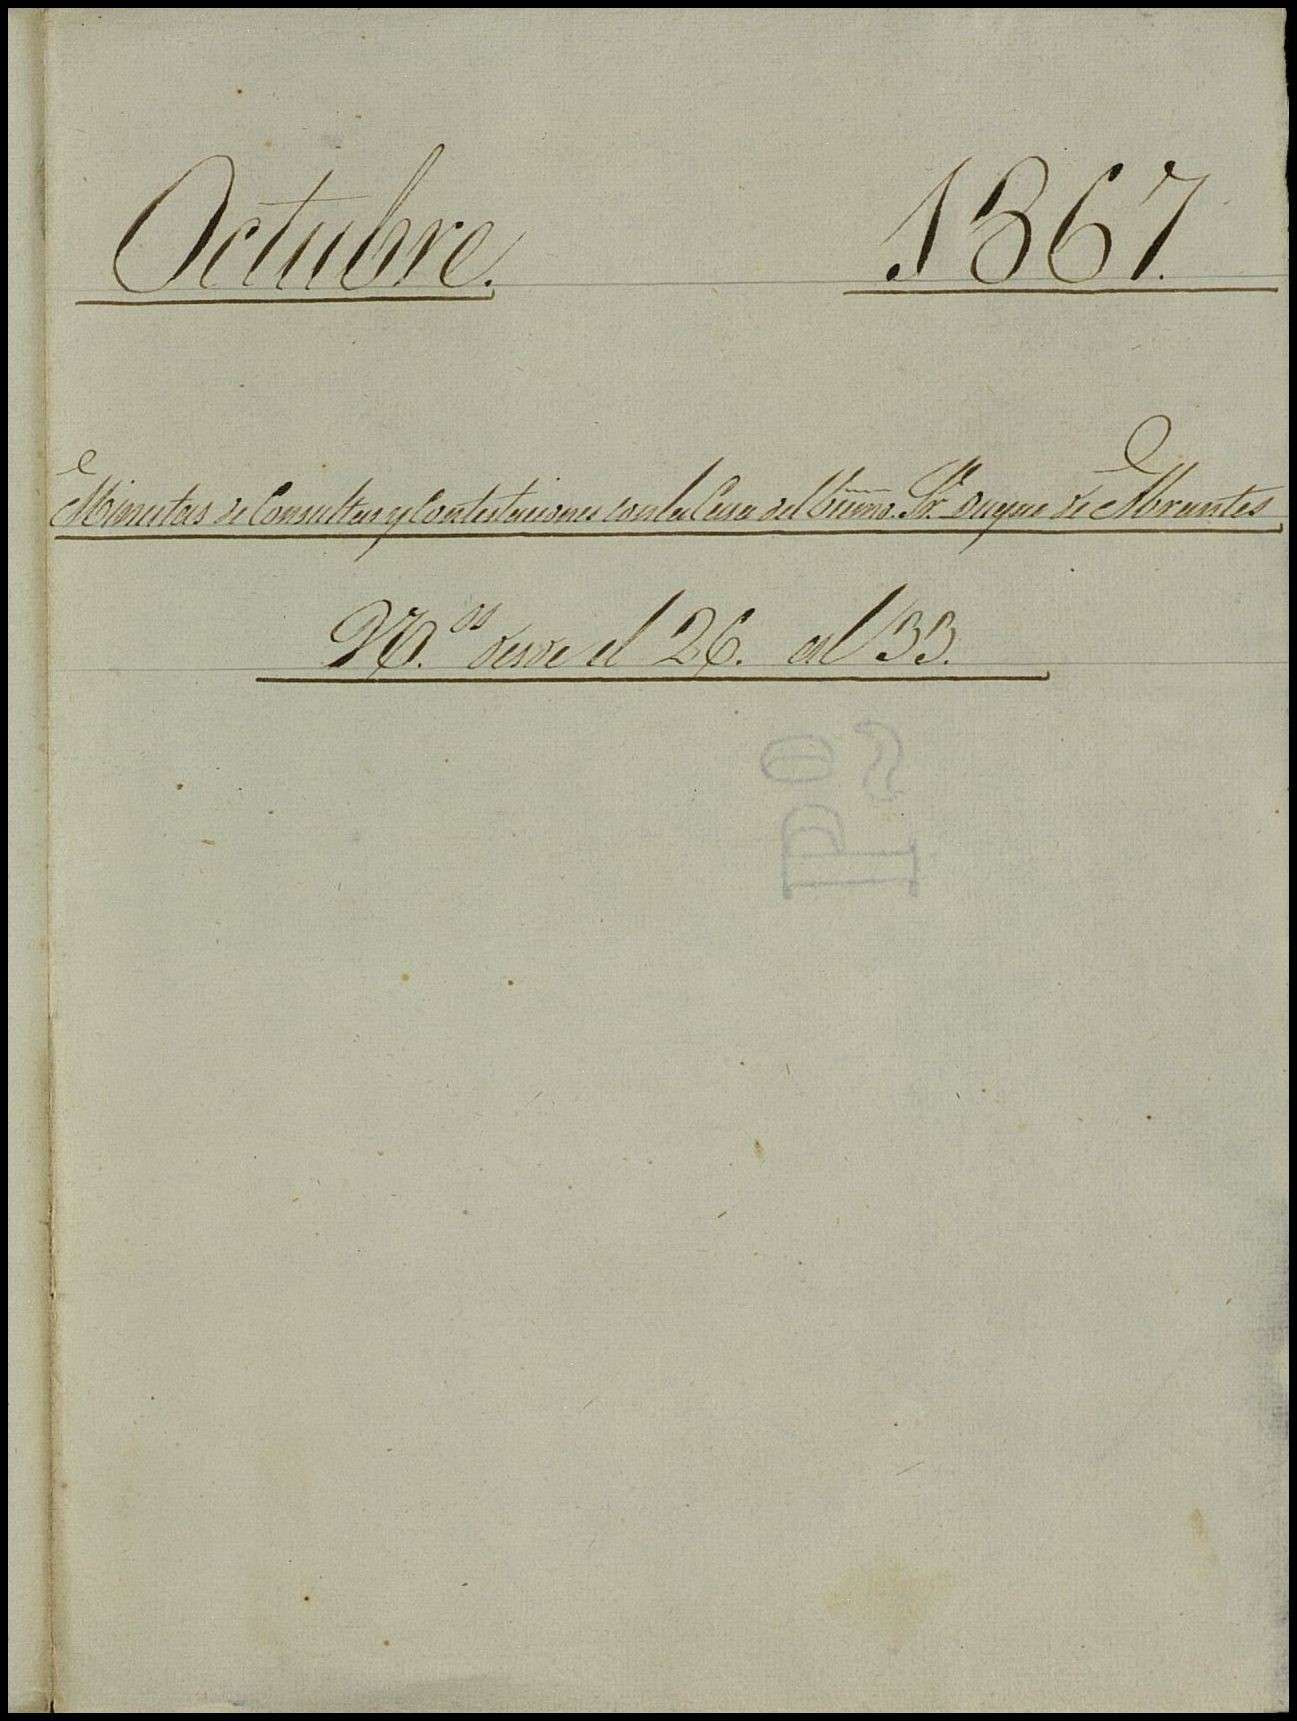 Octubre. 1867.
Minutas de Consultas y Contestaciones con la Casa del Exmo. Sr. Duque de Abrantes
N.os desde el 26. al 33.